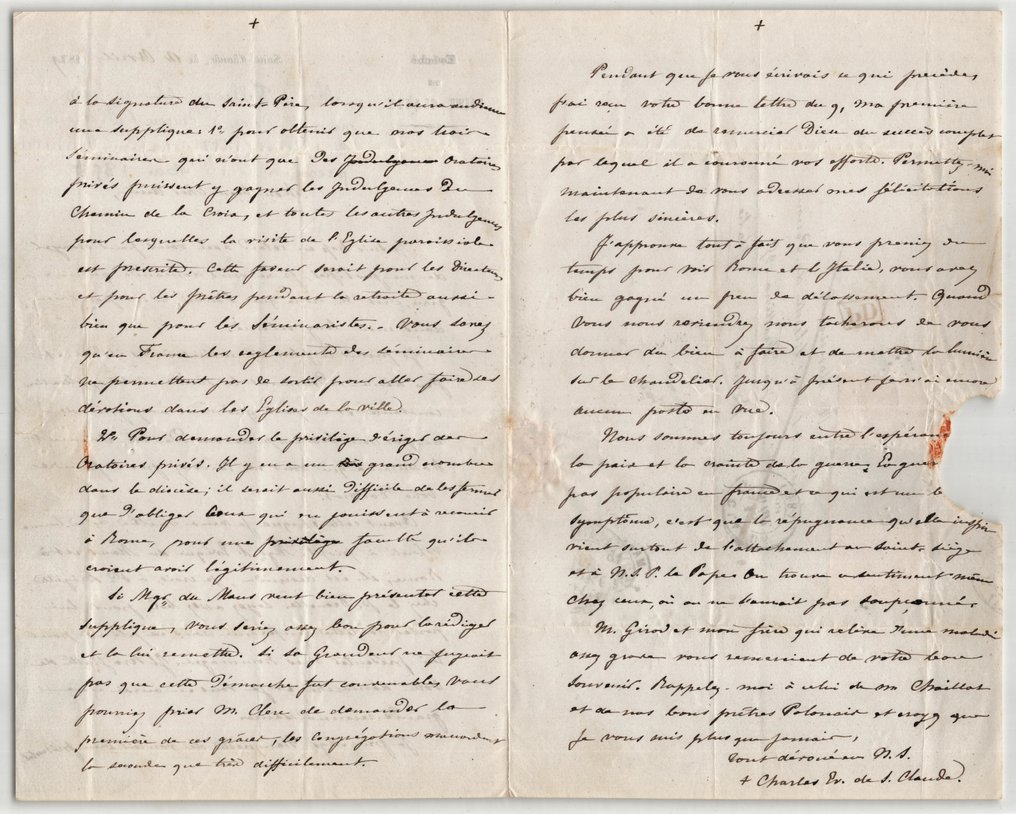 +
à la signature du Saint-Père, lorsqu'il aura audience
une supplique: 1º pour obtenir que nos trois
Séminaires qui n'ont que des Indulgences Oratoires
privés puissent y gagner les Indulgences du
Chemin de la Croix, et toutes les autres Indulgences
pour lesquelles la visite de l'Eglise paroissiale
est prescrite. Cette faveur serait pour les Directeurs
et pour les prêtres pendant la retraite aussi-
bien que pour les Séminaristes. - Vous savez
qu'en France les règlements des séminaires
ne permettent pas de sortir pour aller faire ses
dévotions dans les Eglises de la ville.
2º Pour demander le privilège d'ériger des
Oratoires privés. Il y en a un grand nombre
dans le diocèse; il serait aussi difficile de les fermer
que d'obliger ceux qui en jouissent à recourir
à Rome, pour une privilège faculté qu'ils
croient avoir légitimement.
Si Mgr. du Mans veut bien présenter cette
supplique, vous seriez assez bon pour la rédiger
et la lui remettre. Si sa Grandeur ne jugeait
pas que cette démarche fut convenable, vous
pourriez prier M. Clerc de demander la
première de ces grâces, les congrégations n'accordent
la seconde que très difficilement.
+
Pendant que je vous écrivais ce qui précède,
j'ai reçu votre bonne lettre du 9, ma première
pensée a été de remercier Dieu du succès complet
par lequel il a couronné vos efforts. Permettez-moi
maintenant de vous adresser mes félicitations
les plus sincères.
J'approuve tout à fait que vous preniez du
temps pour voir Rome et l'Italie, vous avez
bien gagné un peu de délassement. Quand
vous nous reviendrez nous tacherons de vous
donner du bien à faire et de mettre la lumière
sur le chandelier. Jusqu'à présent je n'ai encore
aucun poste en vue.
Nous sommes toujours entre l'espéran
la paix et la crainte de la guerre.
pas populaire en france et ce qui est un b
symptôme, c'est que la répugnance qu'elle inspir
vient surtout de l'attachement au Saint-Siège
et à N.S.P. le Pape. On trouve ce sentiment même
chez ceux, où on ne l'aurait pas soupçonné.
M. Girod et mon frère qui relève d'une maladie
assez grave vous remercient de votre bon
souvenir. Rappelez-moi à celui de M Chaillot
et de nos bons prêtres Polonais et croyez que
je vous suis plus que jamais,
tout dévoué en N.S.
+ Charles Ev. de S. Claude.